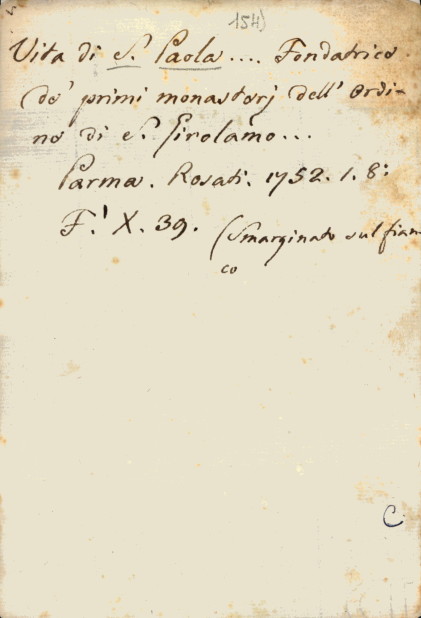 154)
Vita di S. Paola .... Fondatrice
de' primi monasterj dell' Ordi-
ne di S. Girolamo ...
Parma. Rosati. 1752. 1. 8:
F.' X. 39. (Smarginato sul fian-
co
C